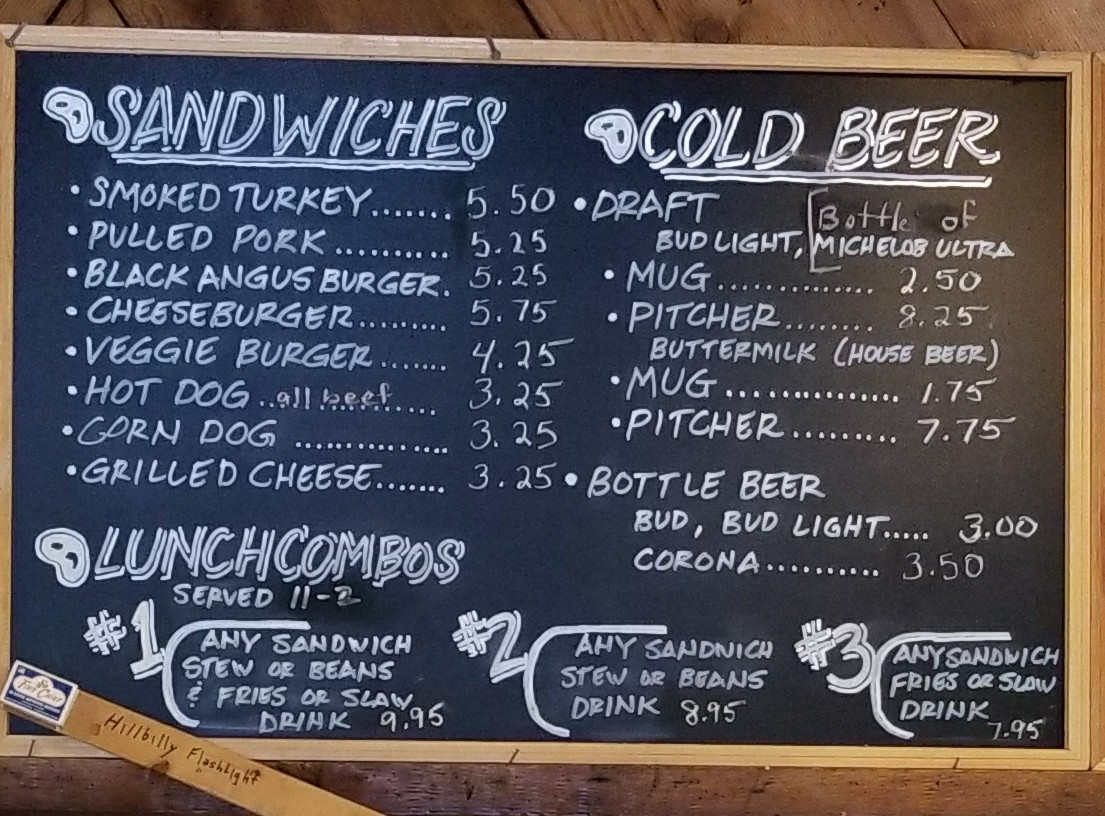 SANDWICHES
• SMOKED TURKEY....... 5.50
• PULLED PORK .......... 5.25
• BLACK ANGUS BURGER. 5.25
• CHEESEBURGER......... 5.75
• VEGGIE BURGER ....... 4.25
• HOT DOG ..all beef.... 3.25
• CORN DOG ............. 3.25
• GRILLED CHEESE....... 3.25
LUNCH COMBOS
SERVED 11-2
#1
ANY SANDWICH
STEW OR BEANS
& FRIES OR SLAW
DRINK 9.95
#2
ANY SANDWICH
STEW OR BEANS
DRINK 8.95
#3
ANY SANDWICH
FRIES OR SLAW
DRINK
7.95
COLD BEER
• DRAFT Bottle of
BUD LIGHT, MICHELOB ULTRA
• MUG.............. 2.50
• PITCHER........ 8.25
BUTTERMILK (HOUSE BEER)
• MUG ............... 1.75
• PITCHER......... 7.75
• BOTTLE BEER
BUD, BUD LIGHT..... 3.00
CORONA.......... 3.50
Hillbilly Flashlight